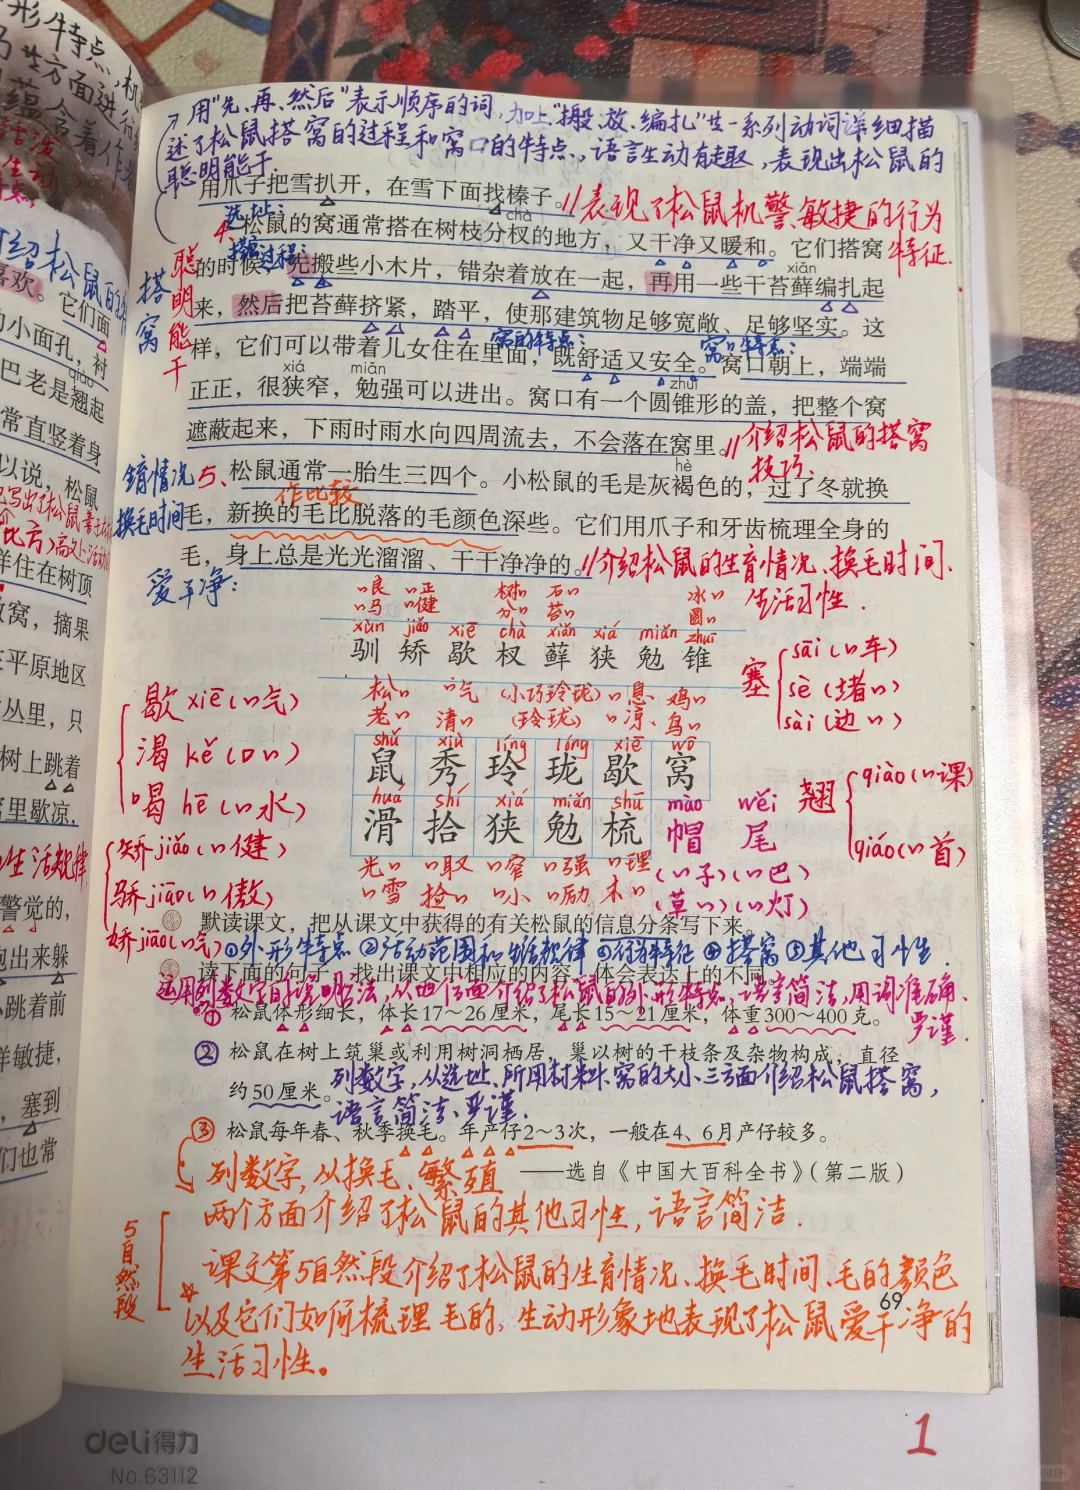 用"先、再、然后"表示顺序的词,加上"搬、放、编扎"其一系列动词详细描
述了松鼠搭窝的过程和窝口的特点,语言生动有趣,表现出松鼠的
聪明能干.
用爪子把雪扒开，在雪下面找榛子。//表现了松鼠机警、敏捷的行为
特征.
选址:
chà
4、松鼠的窝通常搭在树枝分杈的地方，又干净又暖和。它们搭窝
搭窝过程:
xiǎn
的时候，先搬些小木片，错杂着放在一起，再用一些干苔藓编扎起
搭窝
聪明能干
来，然后把苔藓挤紧，踏平，使那建筑物足够宽敞、足够坚实。这
窝的特点:
窝口特点:
样，它们可以带着儿女住在里面，既舒适又安全。窝口朝上，端端
xiá miǎn zhuī
正正，很狭窄，勉强可以进出。窝口有一个圆锥形的盖，把整个窝
遮蔽起来，下雨时雨水向四周流去，不会落在窝里。//介绍松鼠的搭窝
技巧.
hè
5、松鼠通常一胎生三四个。小松鼠的毛是灰褐色的，过了冬就换
作比较
换毛时间
毛，新换的毛比脱落的毛颜色深些。它们用爪子和牙齿梳理全身的
毛，身上总是光光溜溜、干干净净的。//介绍松鼠的生育情况、换毛时间、
生活习性.
爱干净:
〃良 〃正 树〃 石〃 冰〃
〃马 〃健 分〃 苔〃 圆〃
xùn jiǎo xiē chà xiǎn xiá miǎn zhuī
驯 矫 歇 杈 藓 狭 勉 锥
塞 sāi(〃车)
sè(堵〃)
sài(边〃)
松〃 〃气 (小巧玲珑) 〃息 鸡〃
老〃 清〃 (玲珑) 〃凉 鸟〃
歇 xiē(〃气)
渴 kě(口〃)
喝 hē(〃水)
shǔ xiù líng lóng xiē wō
鼠 秀 玲 珑 歇 窝
huá shí xiá miǎn shū mào wěi
滑 拾 狭 勉 梳 帽 尾
翘 qiào(〃课)
qiáo(〃首)
光〃 〃取 〃窄 〃强 〃理 (〃子)(〃巴)
〃雪 捡〃 〃小 〃励 木〃 (草〃)(〃灯)
矫 jiǎo(〃健)
骄 jiāo(〃傲)
娇 jiāo(〃气)
默读课文，把从课文中获得的有关松鼠的信息分条写下来。
①外形特点 ②活动范围和生活规律 ③行为特征 ④搭窝 ⑤其他习性.
读下面的句子，找出课文中相应的内容，体会表达上的不同。
运用列数字的说明方法,从四个方面介绍了松鼠的外形特点,语言简洁,用词准确、
严谨.
① 松鼠体形细长，体长17～26厘米，尾长15～21厘米，体重300～400克。
② 松鼠在树上筑巢或利用树洞栖居，巢以树的干枝条及杂物构成，直径
约50厘米。
列数字,从选址、所用材料、窝的大小三方面介绍松鼠搭窝,
语言简洁、严谨.
③ 松鼠每年春、秋季换毛。年产仔2～3次，一般在4、6月产仔较多。
——选自《中国大百科全书》（第二版）
列数字,从换毛、繁殖
两个方面介绍了松鼠的其他习性,语言简洁.
5自然段
☆课文第5自然段介绍了松鼠的生育情况、换毛时间、毛的颜色
以及它们如何梳理毛的,生动形象地表现了松鼠爱干净的
生活习性。
69
deli得力
No.63112
1
喜欢。它们面
的小面孔，衬
qiào
巴老是翘起
常直竖着身
以说，松鼠
样住在树顶
窝，摘果
在平原地区
丛里，只
树上跳着
里歇凉，
生活规律
警觉的，
跑出来躲
跳着前
样敏捷，
塞到
们也常